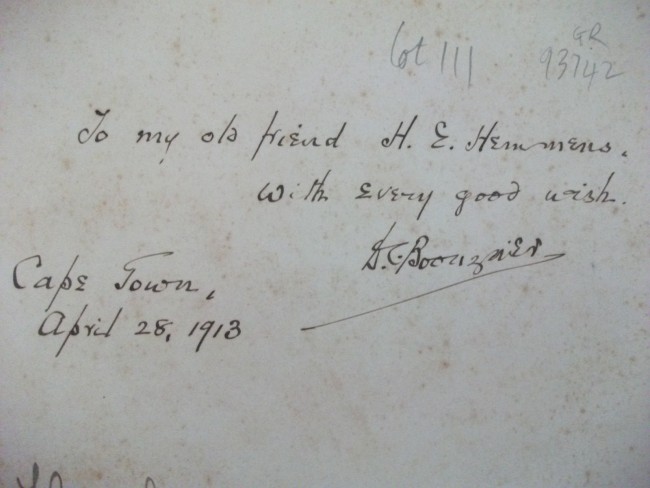 Lot 111
G.R
93742
To my old friend H. E. Hemmens,
with every good wish.
D. C. Boonzaier
Cape Town,
April 28, 1913